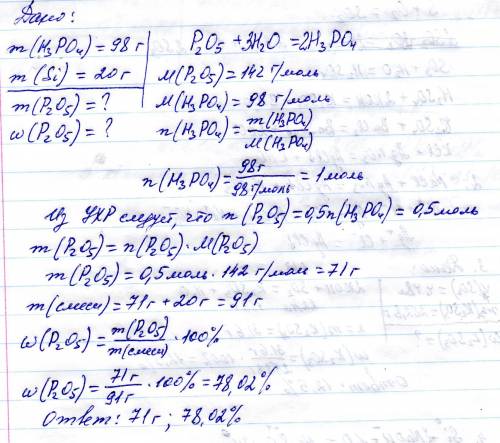 Дано:
m(H₃PO₄) = 98 г
m(Si) = 20 г
m(P₂O₅) = ?
ω(P₂O₅) = ?
P₂O₅ + 3H₂O = 2H₃PO₄
M(P₂O₅) = 142 г/моль
M(H₃PO₄) = 98 г/моль
n(H₃PO₄) = m(H₃PO₄) / M(H₃PO₄)
n(H₃PO₄) = 98г / 98 г/моль = 1 моль
Из УХР следует, что n(P₂O₅) = 0,5n(H₃PO₄) = 0,5 моль
m(P₂O₅) = n(P₂O₅) · M(P₂O₅)
m(P₂O₅) = 0,5 моль · 142 г/моль = 71 г
m(смеси) = 71 г + 20 г = 91 г
ω(P₂O₅) = m(P₂O₅) / m(смеси) · 100%
ω(P₂O₅) = 71 г / 91 г · 100% = 78,02%
Ответ: 71 г; 78,02%